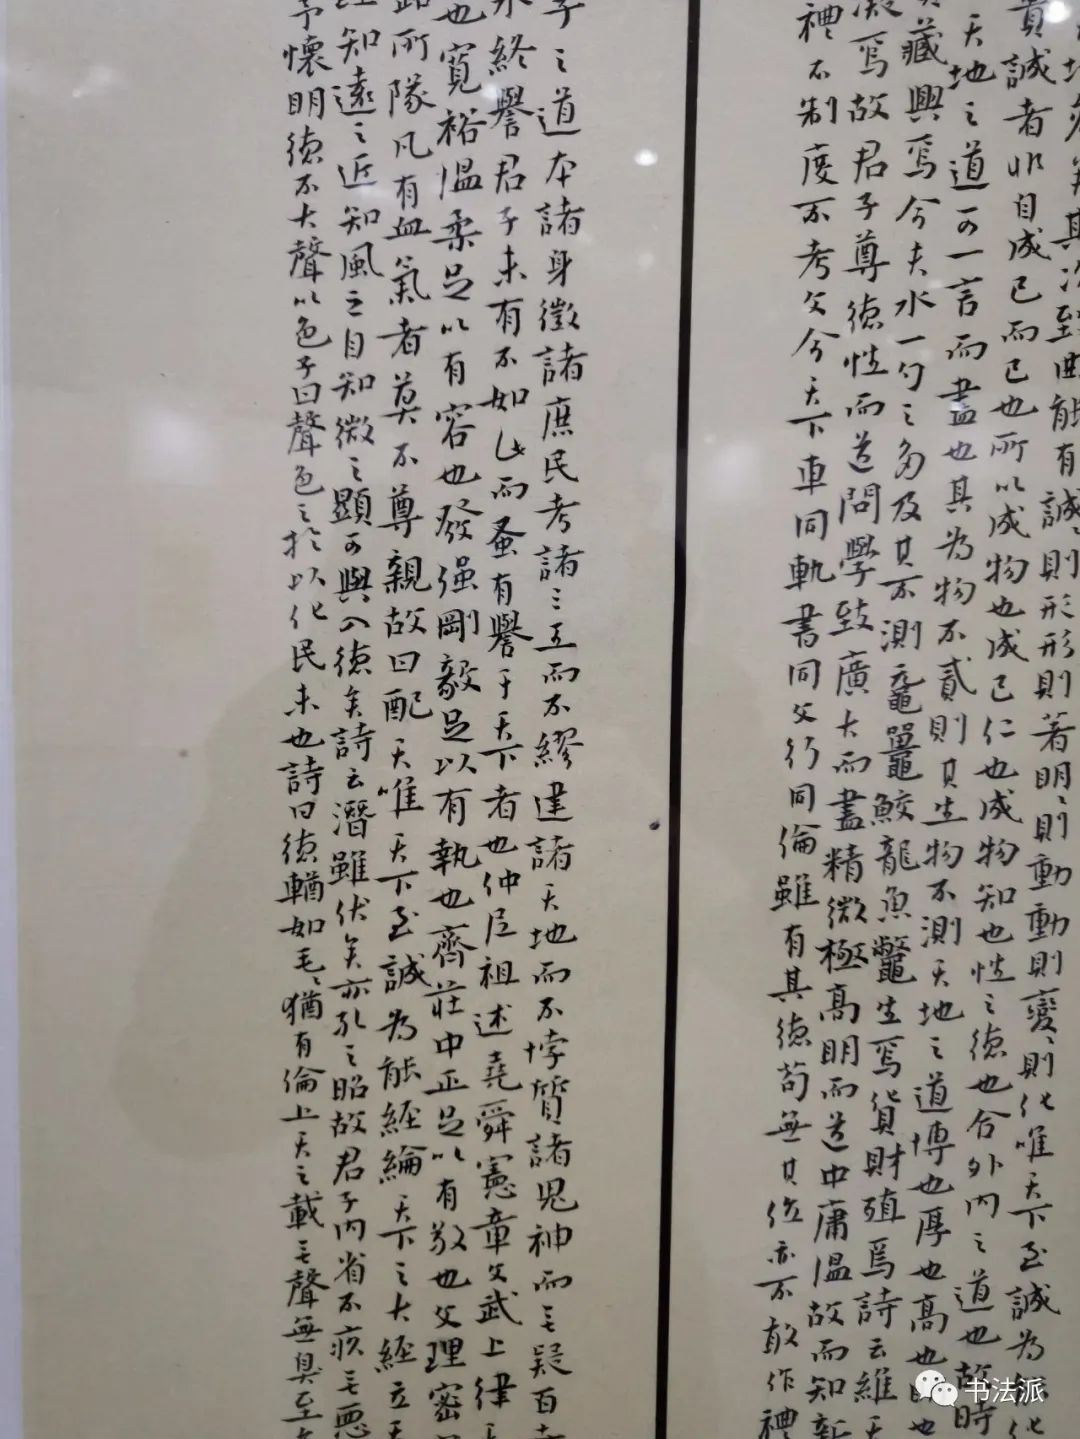 其次致曲能有誠〻則形形則著明〻則動動則變〻則化唯天下至誠為能化
貴誠者非自成己而已也所以成物也成己仁也成物知也性之德也合外內之道也故時
天地之道可一言而盡也其為物不貳則其生物不測天地之道博也厚也高也明也
藏興焉今夫水一勺之多及其不測黿鼉鮫龍魚鼈生焉貨財殖焉詩云維天
凝焉故君子尊德性而道問學致廣大而盡精微極高明而道中庸溫故而知新
禮不制度不考文今天下車同軌書同文行同倫雖有其德苟無其位亦不敢作禮
子之道本諸身徵諸庶民考諸三王而不繆建諸天地而不悖質諸鬼神而无疑百
永終譽君子未有不如此而蚤有譽于天下者也仲尼祖述堯舜憲章文武上律
也寬裕溫柔足以有容也發强剛毅足以有執也齊莊中正足以有敬也文理密
所隊凡有血氣者莫不尊親故曰配天唯天下至誠為能經綸天下之大經立天
知遠之近知風之自知微之顯可與入德矣詩云潛雖伏矣亦孔之昭故君子內省不疚无惡
予懷明德不大聲以色子曰聲色之於以化民末也詩曰德輶如毛〻猶有倫上天之載无聲無臭至
书法派